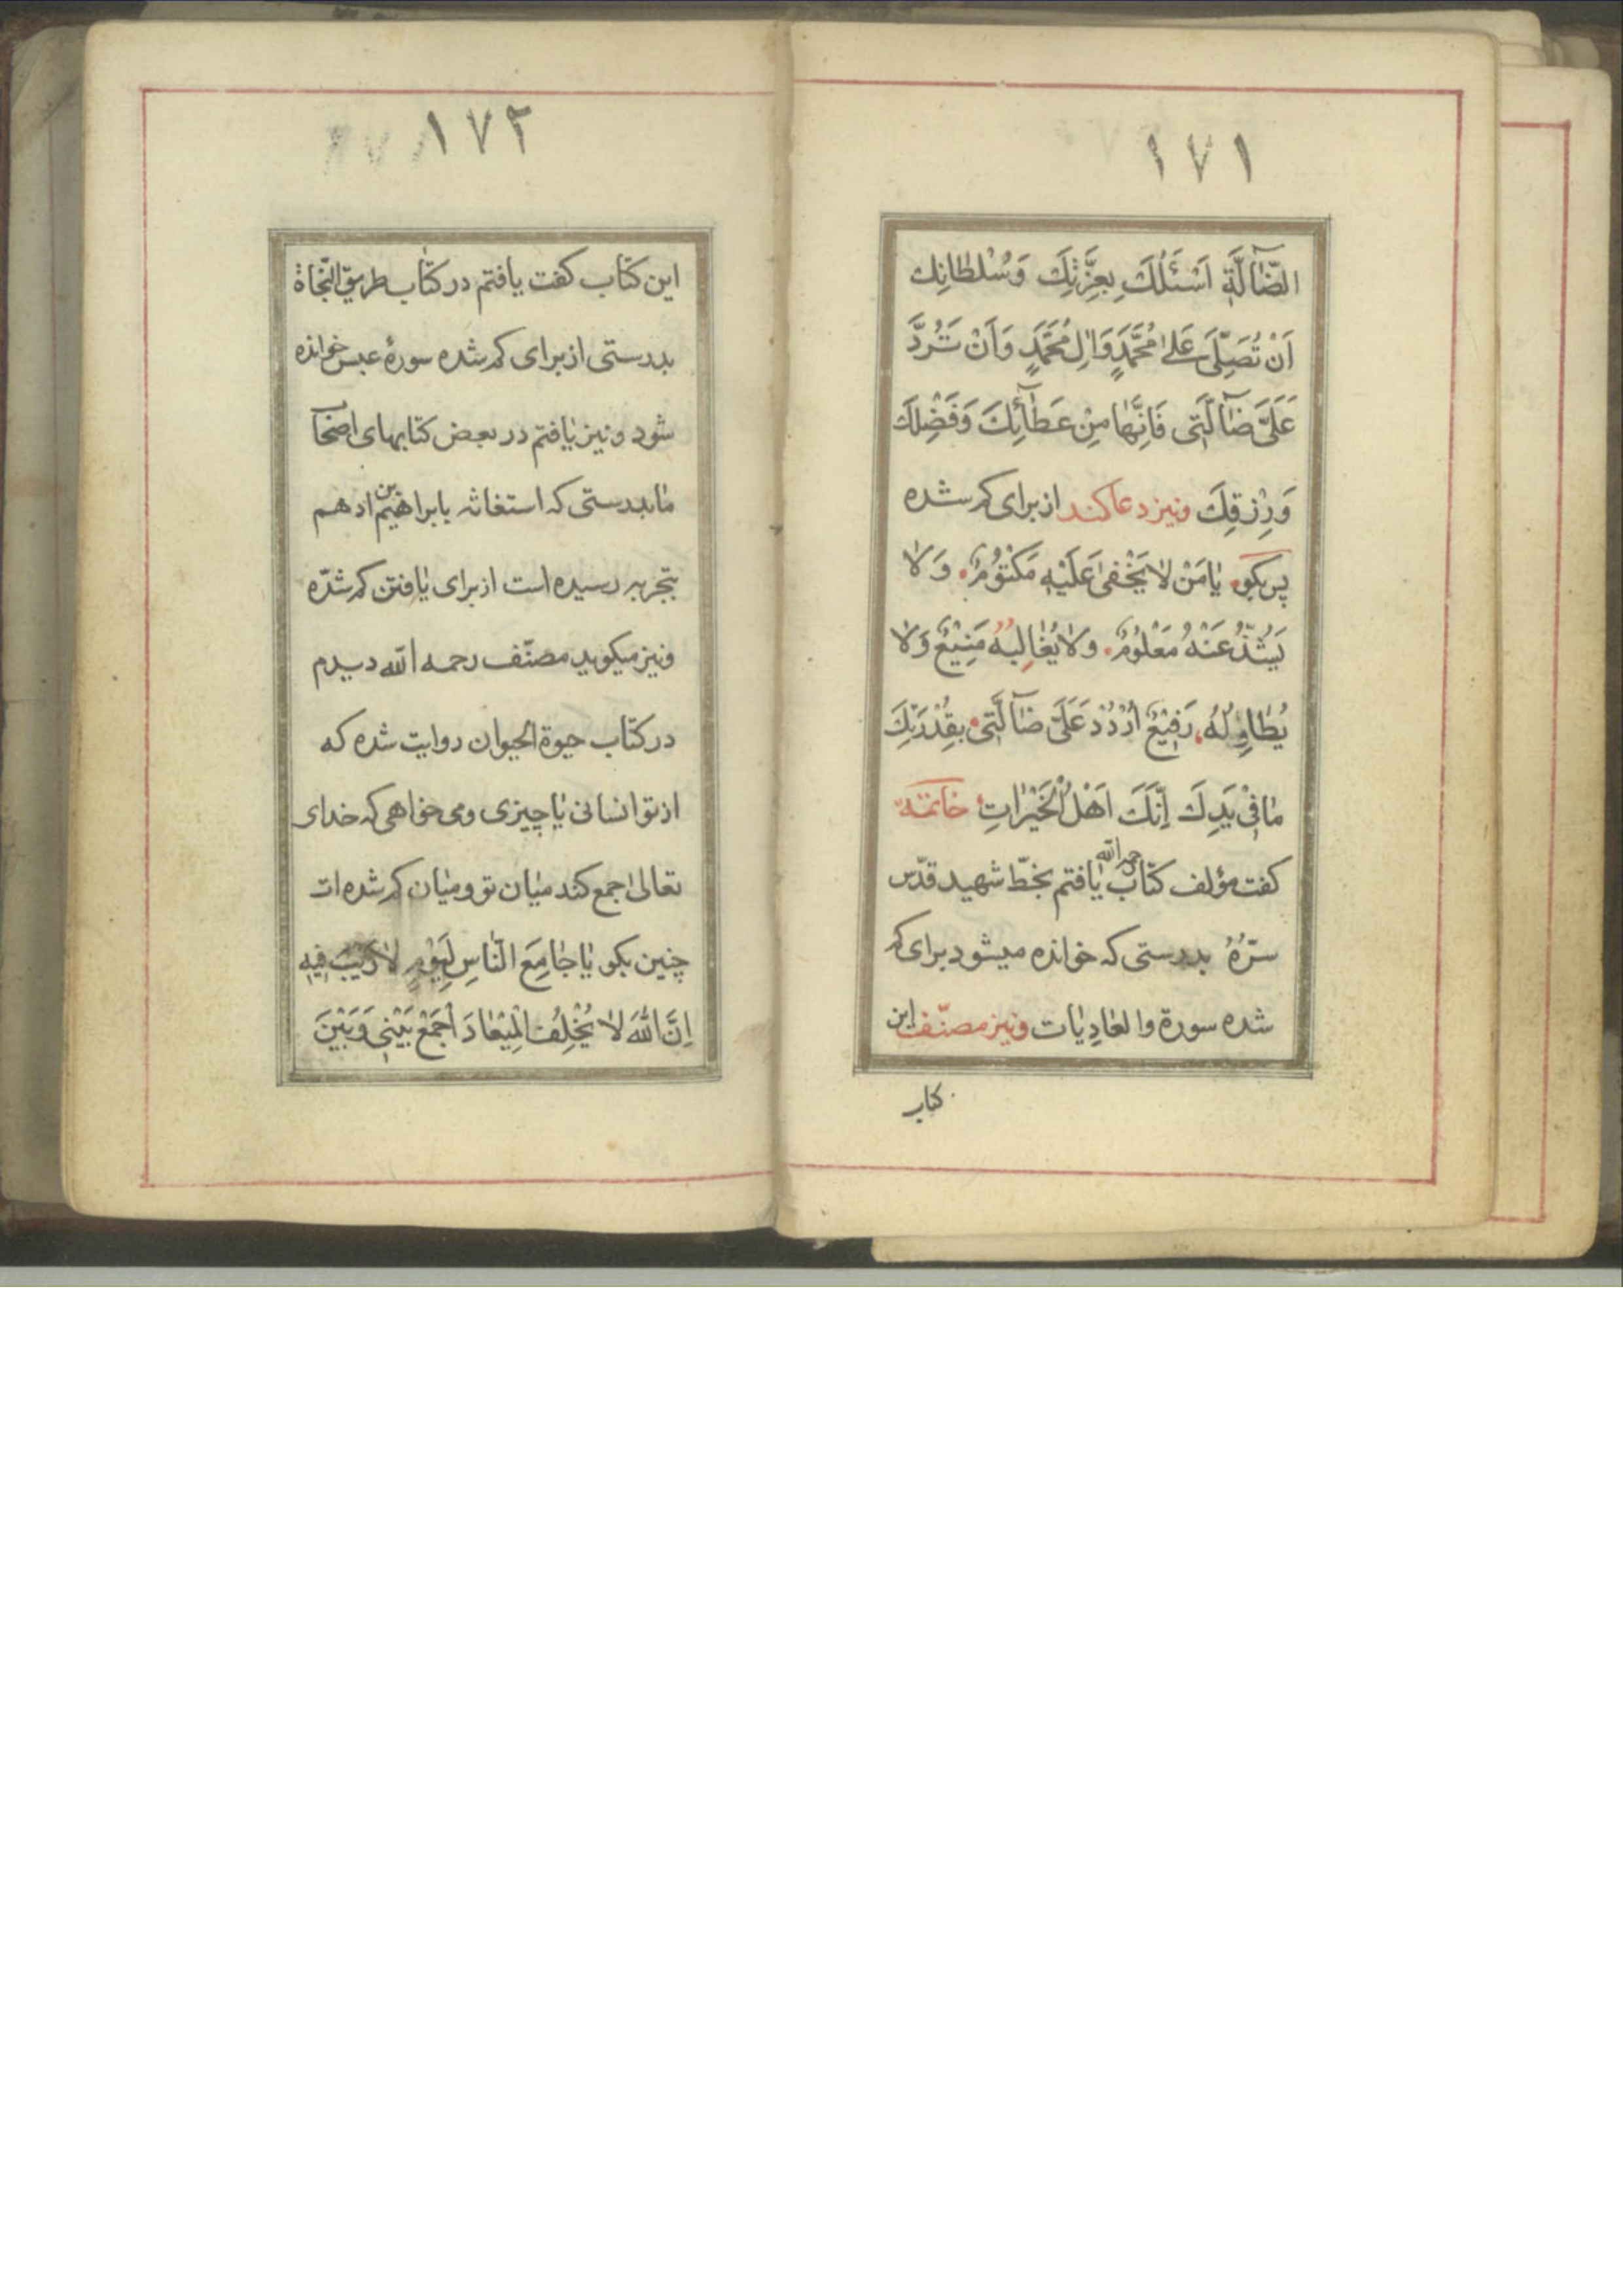 ١٧١
الضّٰآلَّةِ اَسْئَلُكَ بِعِزَّتِكَ وَسُلْطٰانِك
اَنْ تُصَلِّىَ عَلىٰ مُحَمَّدٍ وَاٰلِ مُحَمَّدٍ وَاَنْ تَرُدَّ
عَلَىَّ ضٰآلَّتِى فَاِنَّهٰا مِنْ عَطٰٓائِكَ وَفَضْلِكَ
وَرِزْقِكَ ونیز دعا کند از برای کم شده
پس بکو یٰا مَنْ لٰا یَخْفىٰ عَلَیْهِ مَکْتُوْمٌ وَلٰا
یَشُذُّ عَنْهُ مَعْلُوْمٌ ولٰا یُغٰالِبُهُ مَنِیْعٌ وَلٰا
یُطٰاوِلُهُ رَفِیْعٌ اُرْدُدْ عَلَىَّ ضٰآلَّتِى بِقُدْرَتِكَ
مٰا فِیْ یَدِكَ اِنَّكَ اَهْلُ الْخَیْرٰاتِ خاتمة
کفت مؤلف کتاب رحمه الله یٰافتم بخطّ شهید قدّس
سرّهُ بدرستی که خوانده میشود برای کم
شده سورة والعٰادِیٰات ونیز مصنّف این
کتاب
١٧٢
این کتاب کفت یافتم در کتٰاب طریق النّجٰاة
بدرستی از برای کم شده سورهٔ عبس خوانده
شود و نیز یٰافتم در بعض کتابهای اصحٰاب
مٰا بدرستی که استغاثه بابراهیم بن ادهم
بتجربه رسیده است از برای یٰافتن کم شدّه
ونیز میکوید مصنّف رحمه الله دیدم
در کتاب حیوة الحیوان روایت شده که
از تو انسانی یٰا چیزی ومی خواهی که خدای
تعالیٰ جمع کند میٰان تو ومیٰان کم شده ات
چنین بکو یٰا جٰامِعَ النّٰاسِ لِیَوْمٍ لٰا رَیْبَ فِیهِ
اِنَّ اللّٰهَ لٰا یُخْلِفُ الْمِیْعٰادَ اَجْمَعْ بَیْنِى وَبَیْنَ